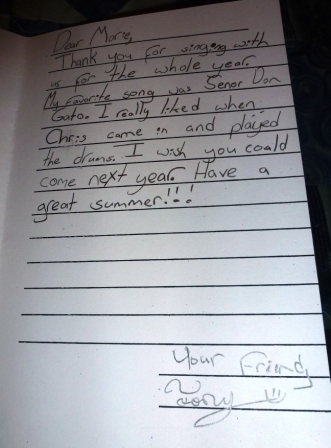 Dear Marie,
Thank you for singing with
us for the whole year.
My favorite song was Senor Don
Gato. I really liked when
Chris came in and played
the drums. I wish you could
come next year. Have a
great summer!!!
Your Friend